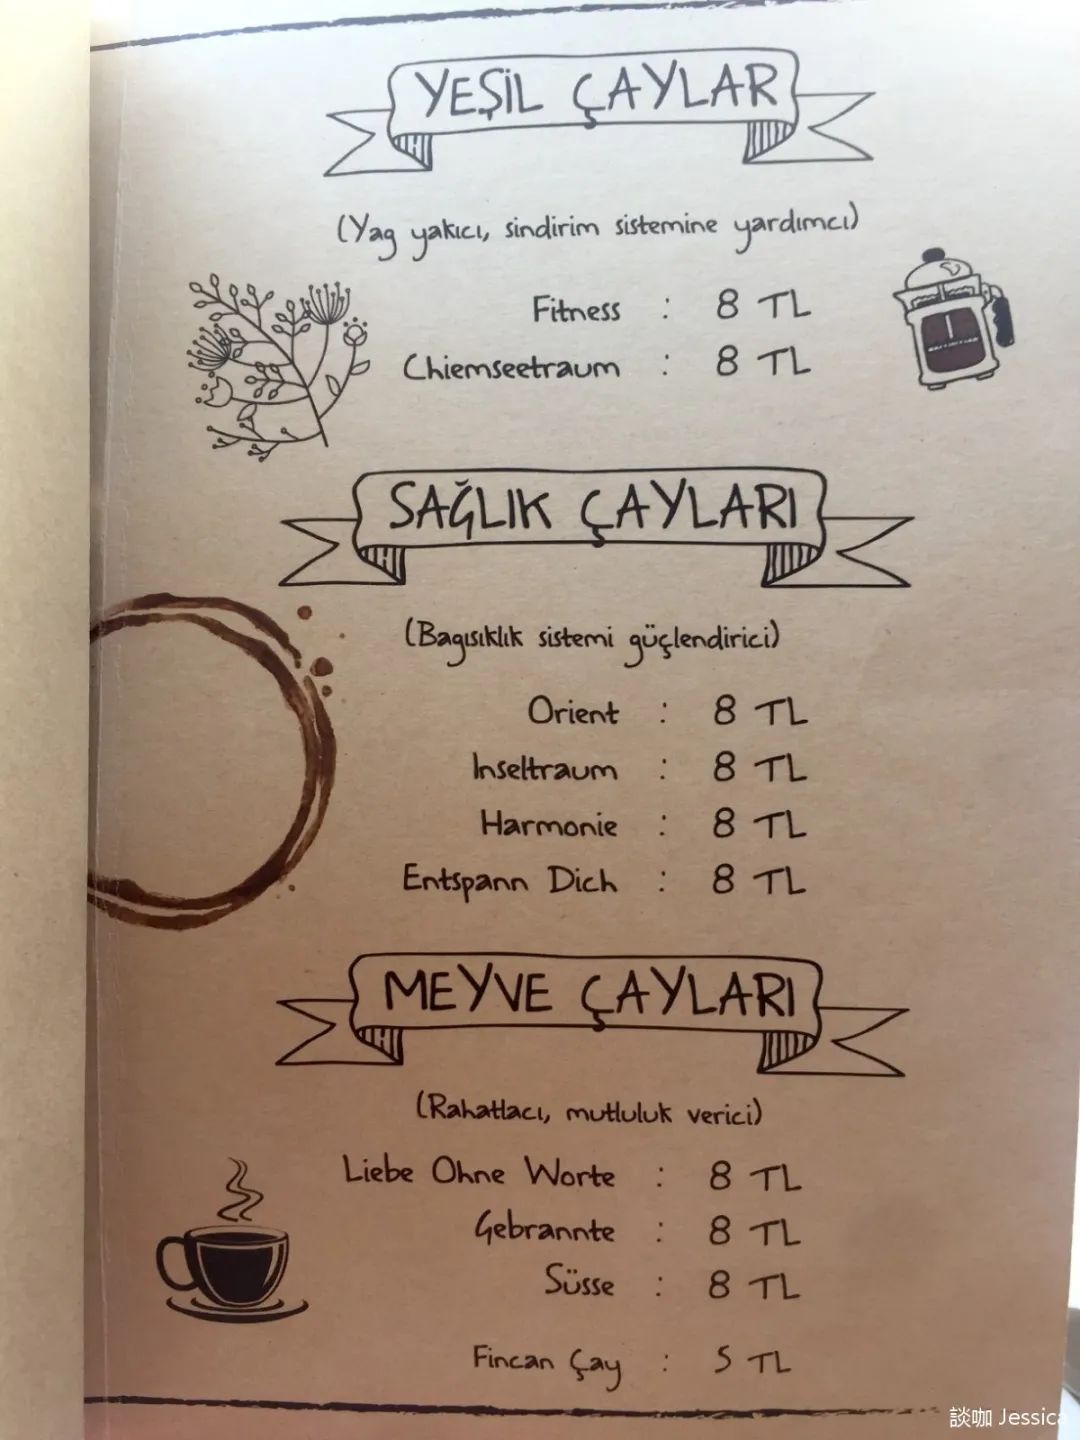 YEŞİL ÇAYLAR
(Yag yakıcı, sindirim sistemine yardımcı)
Fitness : 8 TL
Chiemseetraum : 8 TL
SAĞLIK ÇAYLARI
(Bagısıklık sistemi güçlendirici)
Orient : 8 TL
Inseltraum : 8 TL
Harmonie : 8 TL
Entspann Dich : 8 TL
MEYVE ÇAYLARI
(Rahatlacı, mutluluk verici)
Liebe Ohne Worte : 8 TL
Gebrannte : 8 TL
Süsse : 8 TL
Fincan Çay : 5 TL
談咖 Jessica